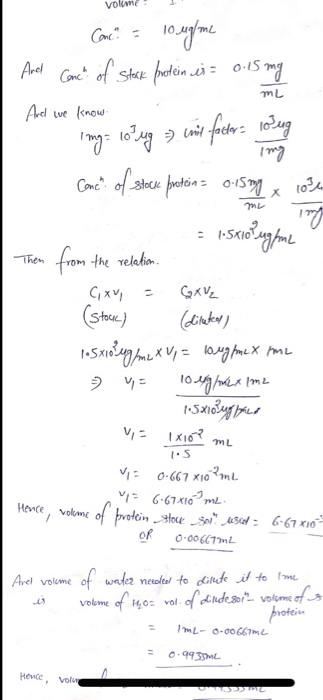 volume
Concⁿ = 10 μg/mL
And Concⁿ of stock protein is = 0.15 mg/mL
And we know
1mg = 10³μg ⇒ unit factor = 10³μg/1mg
Concⁿ of stock protein = 0.15mg/mL × 10³/1mg
= 1.5×10²μg/mL
Then from the relation.
C₁×V₁ = C₂×V₂
(Stock) (diluted)
1.5×10²μg/mL×V₁ = 10μg/mL× 1mL
⇒ V₁ = 10μg/mL×1mL
1.5×10²μg/mL
V₁ = 1×10⁻² mL
1.5
V₁ = 0.667 ×10⁻²mL
V₁ = 6.67×10⁻³mL.
Hence, volume of protein stock solⁿ used = 6.67×10⁻³
OR 0.00667mL
And volume of water needed to dilute it to 1mL
is volume of H₂O = vol. of dilute solⁿ - volume of
protein
= 1mL - 0.0066mL
= 0.9933mL.
Hence,